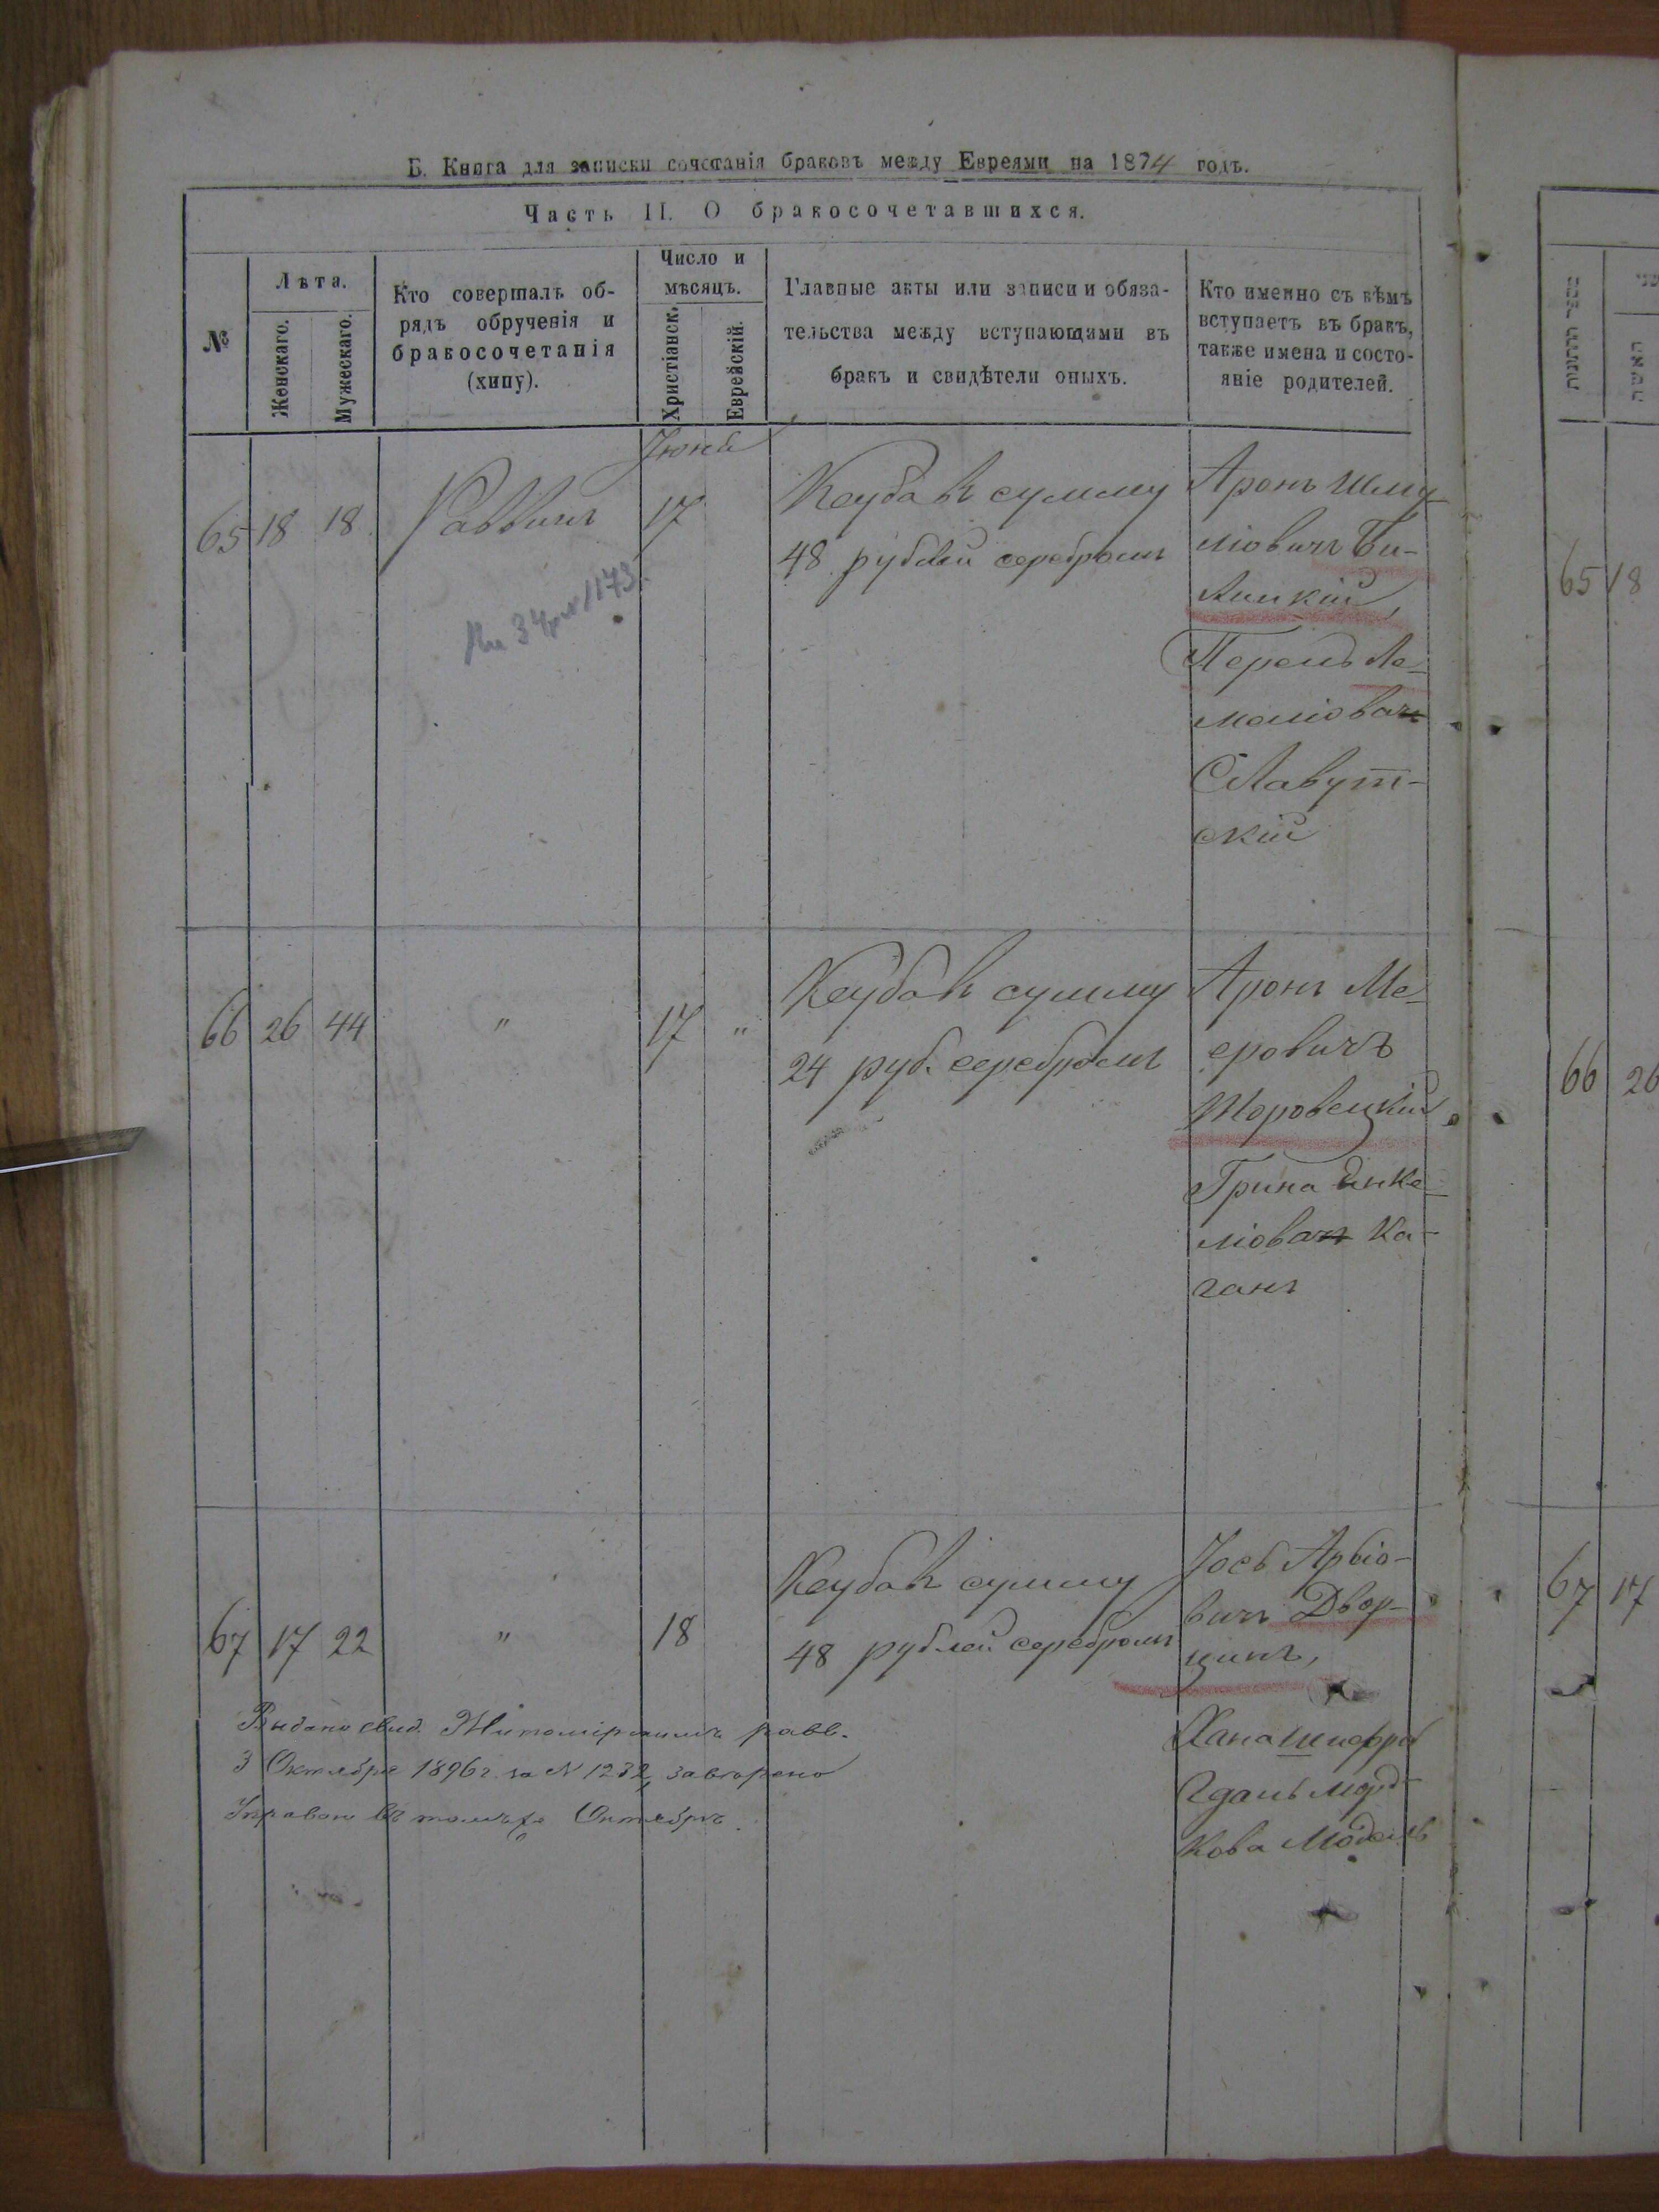 Б. Книга для записки сочетанія браковъ между Евреями на 1874 годъ.
Часть II. О бракосочетавшихся.
№
Лѣта.
Женскаго.
Мужескаго.
Кто совершалъ об-
рядъ обрученія и
бракосочетанія
(хипу).
Число и
мѣсяцъ.
Христіанск.
Еврейскій.
Главные акты или записи и обяза-
тельства между вступающими въ
бракъ и свидѣтели оныхъ.
Кто именно съ кѣмъ
вступаетъ въ бракъ,
также имена и состо-
яніе родителей.
Іюнь
65 18 18 Раввинъ 17
Ктуба въ сумму
48 рублей серебромъ
Аронъ Шму-
ліовичъ Би-
Перель Ле-
Славут-
скій
66 26 44 " 17 "
Ктуба въ сумму
24 руб. серебромъ
Аронъ Ме-
еровичъ
Жоровецкій
Ка-
ганъ
67 17 22 " 18
Ктуба въ сумму
48 рублей серебромъ
Іось Арьіо-
вичъ Двор-
цинъ,
Хана Шифра
Морд-
кова Модель
Выдано свид. Житомірскимъ равв.
3 Октября 1896 г. за № 1232,
Управою въ томъ же Октябрѣ
65 18
66 26
67 17
האשה